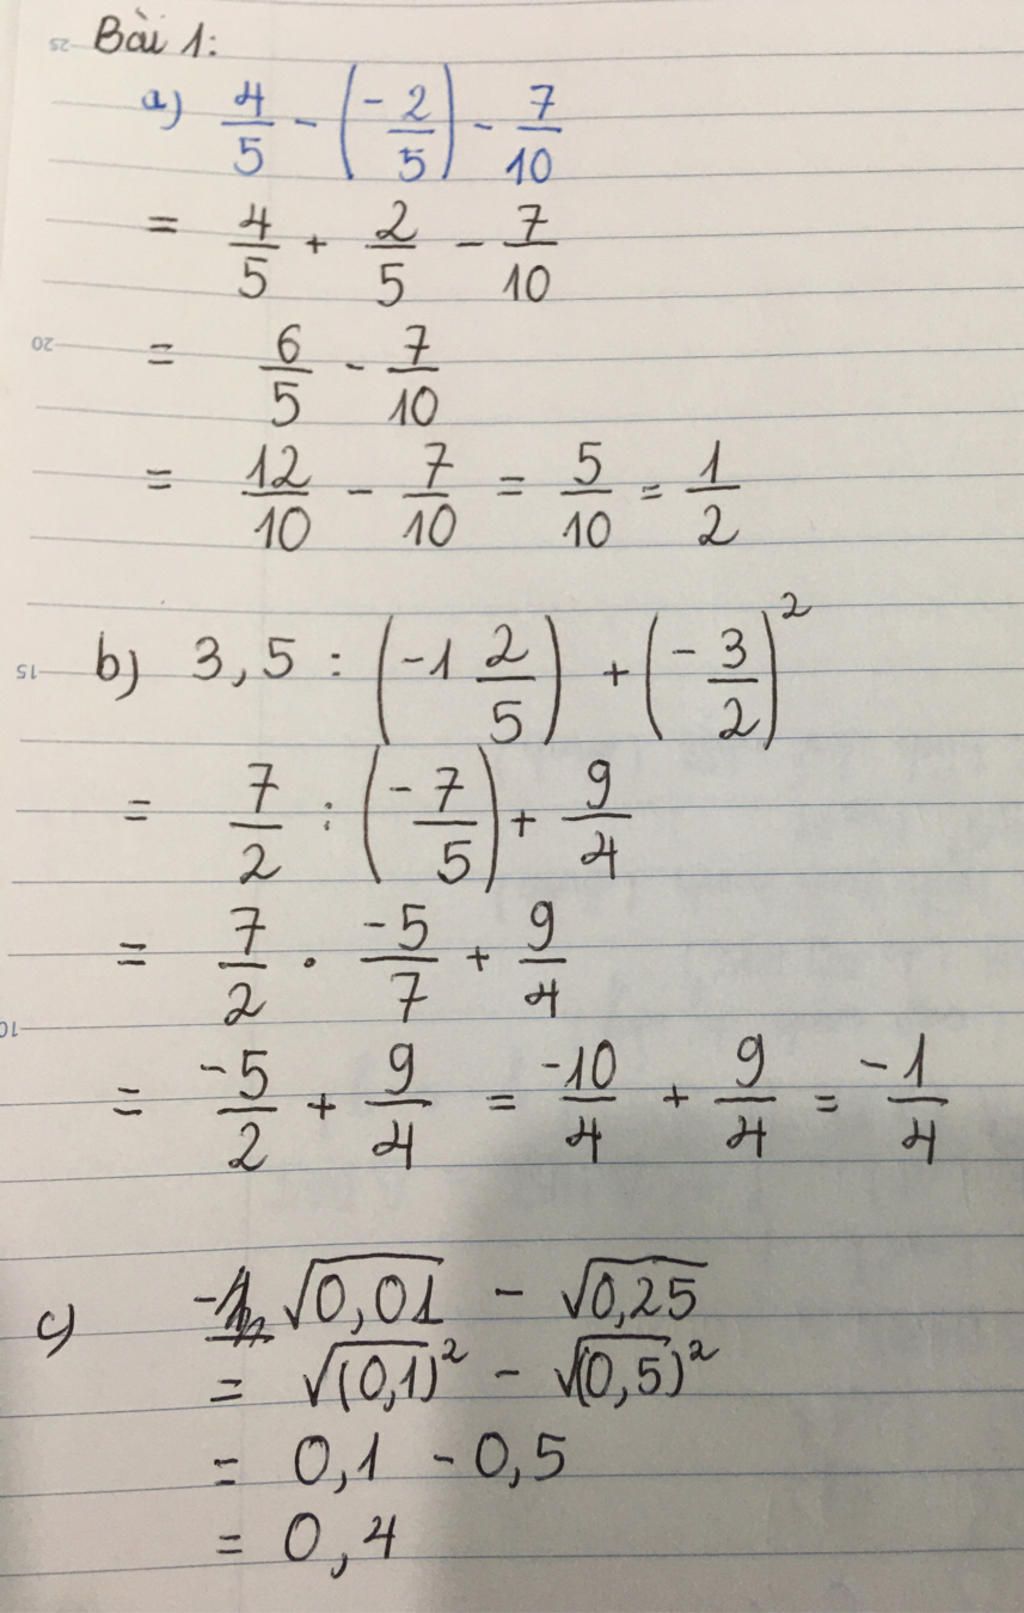 Bài 1:
a) 4/5 - (-2/5) - 7/10
= 4/5 + 2/5 - 7/10
= 6/5 - 7/10
= 12/10 - 7/10 = 5/10 = 1/2
b) 3,5 : (-1 2/5) + (-3/2)²
= 7/2 : (-7/5) + 9/4
= 7/2 . -5/7 + 9/4
= -5/2 + 9/4 = -10/4 + 9/4 = -1/4
c) √0,01 - √0,25
= √(0,1)² - √(0,5)²
= 0,1 - 0,5
= 0,4
25
20
15
10